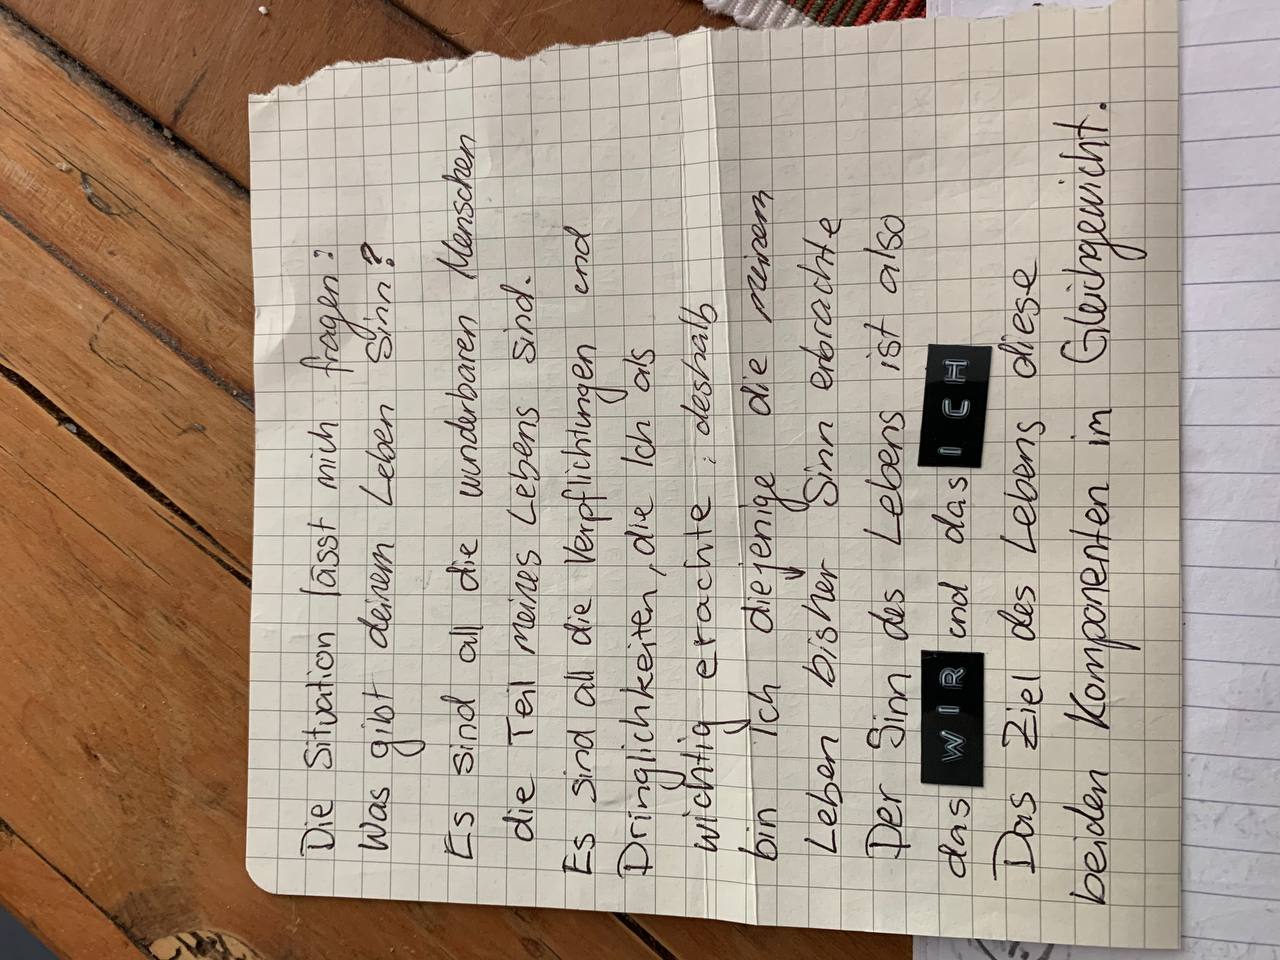 Die Situation lässt mich fragen:
Was gibt deinem Leben Sinn?
Es sind all die wunderbaren Menschen
die Teil meines Lebens sind.
Es sind all die Verpflichtungen und
Dringlichkeiten, die Ich als
wichtig erachte; deshalb
bin Ich diejenige die meinem
Leben bisher Sinn erbrachte
Der Sinn des Lebens ist also
das WIR und das ICH
Das Ziel des Lebens diese
beiden Komponenten im Gleichgewicht.